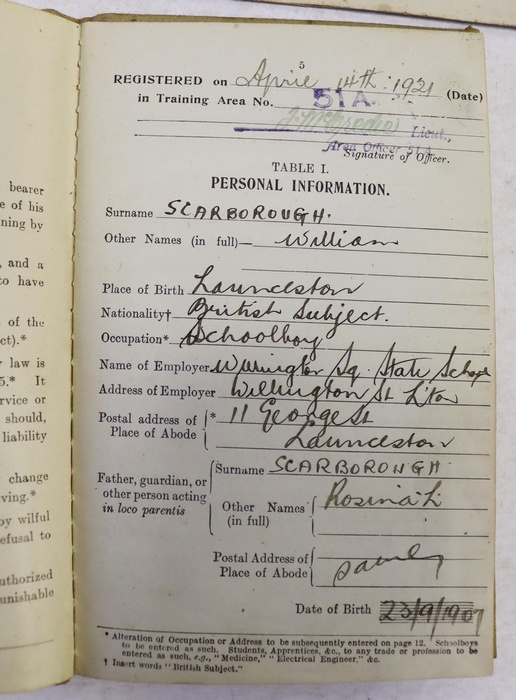 bearer
e of his
ning by
, and a
to have
of the
ct).*
law is
5.* It
rvice or
should,
liability
change
ving.*
by wilful
efusal to
uthorized
unishable
5
REGISTERED on April 14th: 1921 (Date)
in Training Area No. 51A.
Lieut.,
Area Officer 51A
Signature of Officer.
TABLE I.
PERSONAL INFORMATION.
Surname SCARBOROUGH.
Other Names (in full)— William
Place of Birth Launceston
Nationality† British Subject.
Occupation* Schoolboy
Name of Employer Wellington Sq. State School
Address of Employer Wellington St L'ton
Postal address of Place of Abode * 11 George St
Launceston
Father, guardian, or other person acting in loco parentis
Surname SCARBOROUGH
Other Names (in full) Rosina L
Postal Address of Place of Abode
Date of Birth 23/9/1907
* Alteration of Occupation or Address to be subsequently entered on page 12. Schoolboys
to be entered as such. Students, Apprentices, &c., to any trade or profession to be
entered as such, e.g., "Medicine," "Electrical Engineer," &c.
† Insert words "British Subject."